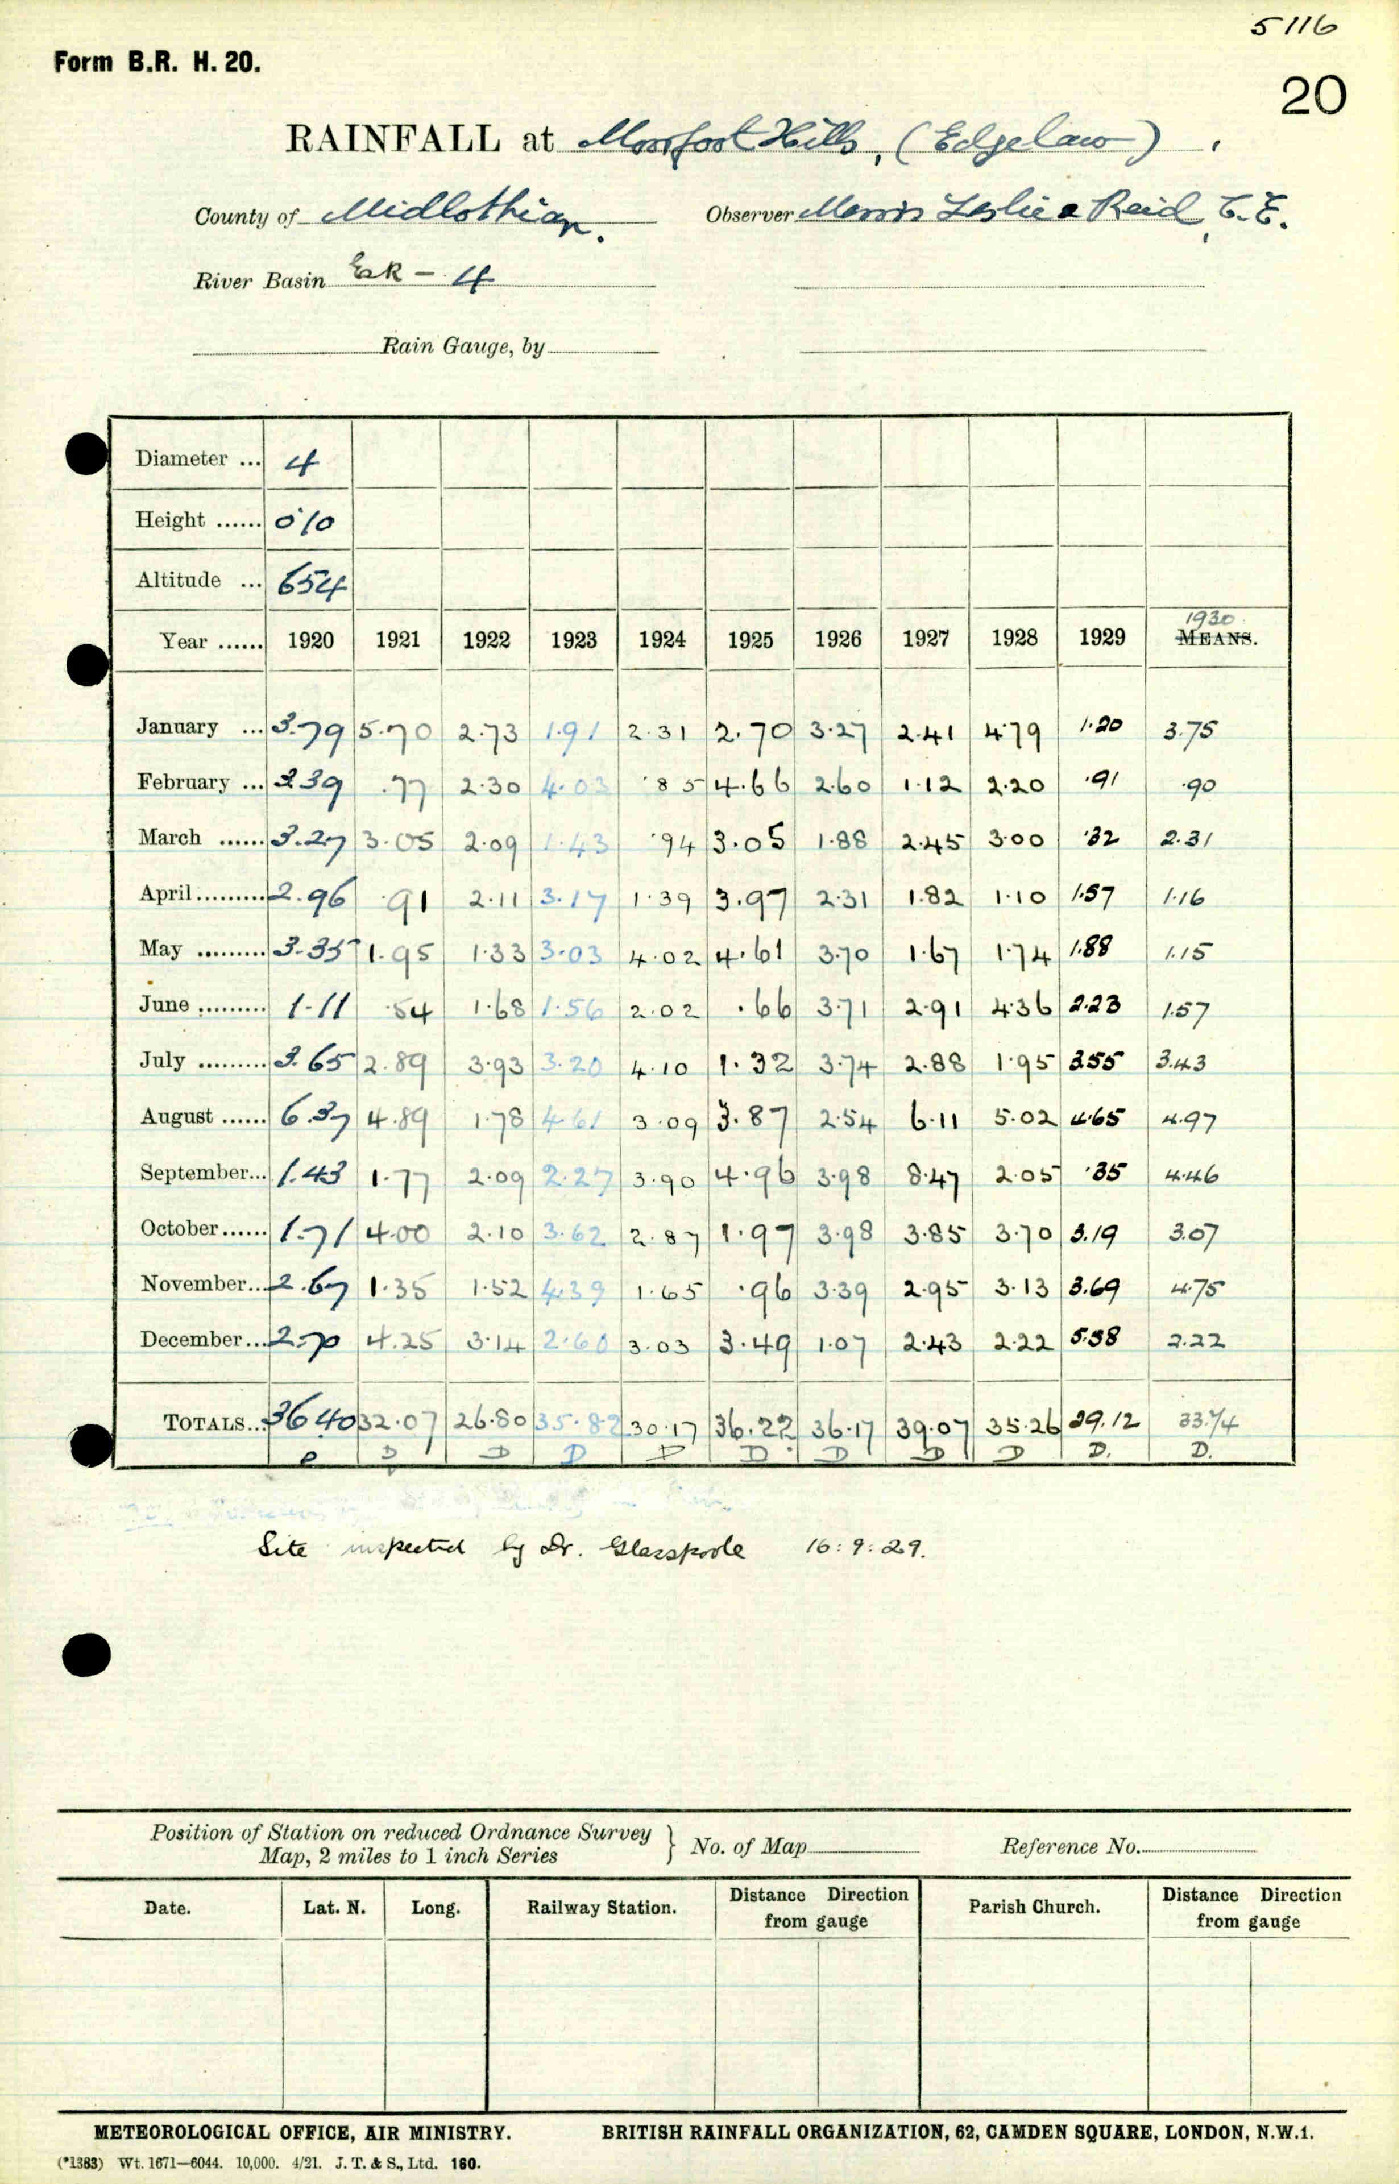 5116
Form B.R. H. 20.
20
RAINFALL at Mossfoot Hills, (Edgelaw)
County of Midlothian. Observer Leslie & Reid, C.E.
River Basin Esk - 4
Rain Gauge, by
Diameter ... 4
Height ...... 0'10
Altitude ... 654
1930
Year ...... 1920 1921 1922 1923 1924 1925 1926 1927 1928 1929 MEANS.
January ... 3.79 5.70 2.73 1.91 2.31 2.70 3.27 2.41 4.79 1.20 3.75
February ... 3.39 .77 2.30 4.03 .85 4.66 2.60 1.12 2.20 .91 .90
March ...... 3.27 3.05 2.09 1.43 .94 3.05 1.88 2.45 3.00 .32 2.31
April ......... 2.96 .91 2.11 3.17 1.39 3.97 2.31 1.82 1.10 1.57 1.16
May ......... 3.35 1.95 1.33 3.03 4.02 4.61 3.70 1.67 1.74 1.88 1.15
June ......... 1.11 .54 1.68 1.56 2.02 .66 3.71 2.91 4.36 2.23 1.57
July ......... 3.65 2.89 3.93 3.20 4.10 1.32 3.74 2.88 1.95 3.55 3.43
August ...... 6.37 4.89 1.78 4.61 3.09 3.87 2.54 6.11 5.02 4.65 4.97
September... 1.43 1.77 2.09 2.27 3.90 4.96 3.98 8.47 2.05 .35 4.46
October...... 1.71 4.00 2.10 3.62 2.87 1.97 3.98 3.85 3.70 3.19 3.07
November... 2.67 1.35 1.52 4.39 1.65 .96 3.39 2.95 3.13 3.69 4.75
December... 2.70 4.25 3.14 2.60 3.03 3.49 1.07 2.43 2.22 5.58 2.22
TOTALS... 36.40 32.07 26.80 35.82 30.17 36.22 36.17 39.07 35.26 29.12 33.74
D D D D D D D D D. D.
Site inspected by Dr. Glasspoole 16:9:29.
Position of Station on reduced Ordnance Survey
Map, 2 miles to 1 inch Series } No. of Map Reference No.
Date. Lat. N. Long. Railway Station. Distance Direction from gauge Parish Church. Distance Direction from gauge
METEOROLOGICAL OFFICE, AIR MINISTRY. BRITISH RAINFALL ORGANIZATION, 62, CAMDEN SQUARE, LONDON, N.W.1.
(*1383) Wt. 1671—6044. 10,000. 4/21. J. T. & S., Ltd. 160.